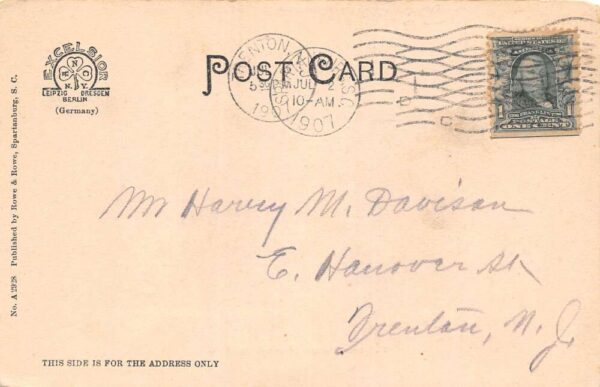 EXCELSIOR
N
R N C Y
LEIPZIG DRESDEN
BERLIN
(Germany)
POST CARD
TRENTON, N.J.
JUL 2
10-AM
1907
UNITED STATES OF
1
FRANKLIN
POSTAGE
ONE CENT
Mr Harvey M. Davison
E. Hanover St
Trenton, N. J.
No. A 2928 Published by Rowe & Rowe, Spartanburg, S. C.
THIS SIDE IS FOR THE ADDRESS ONLY